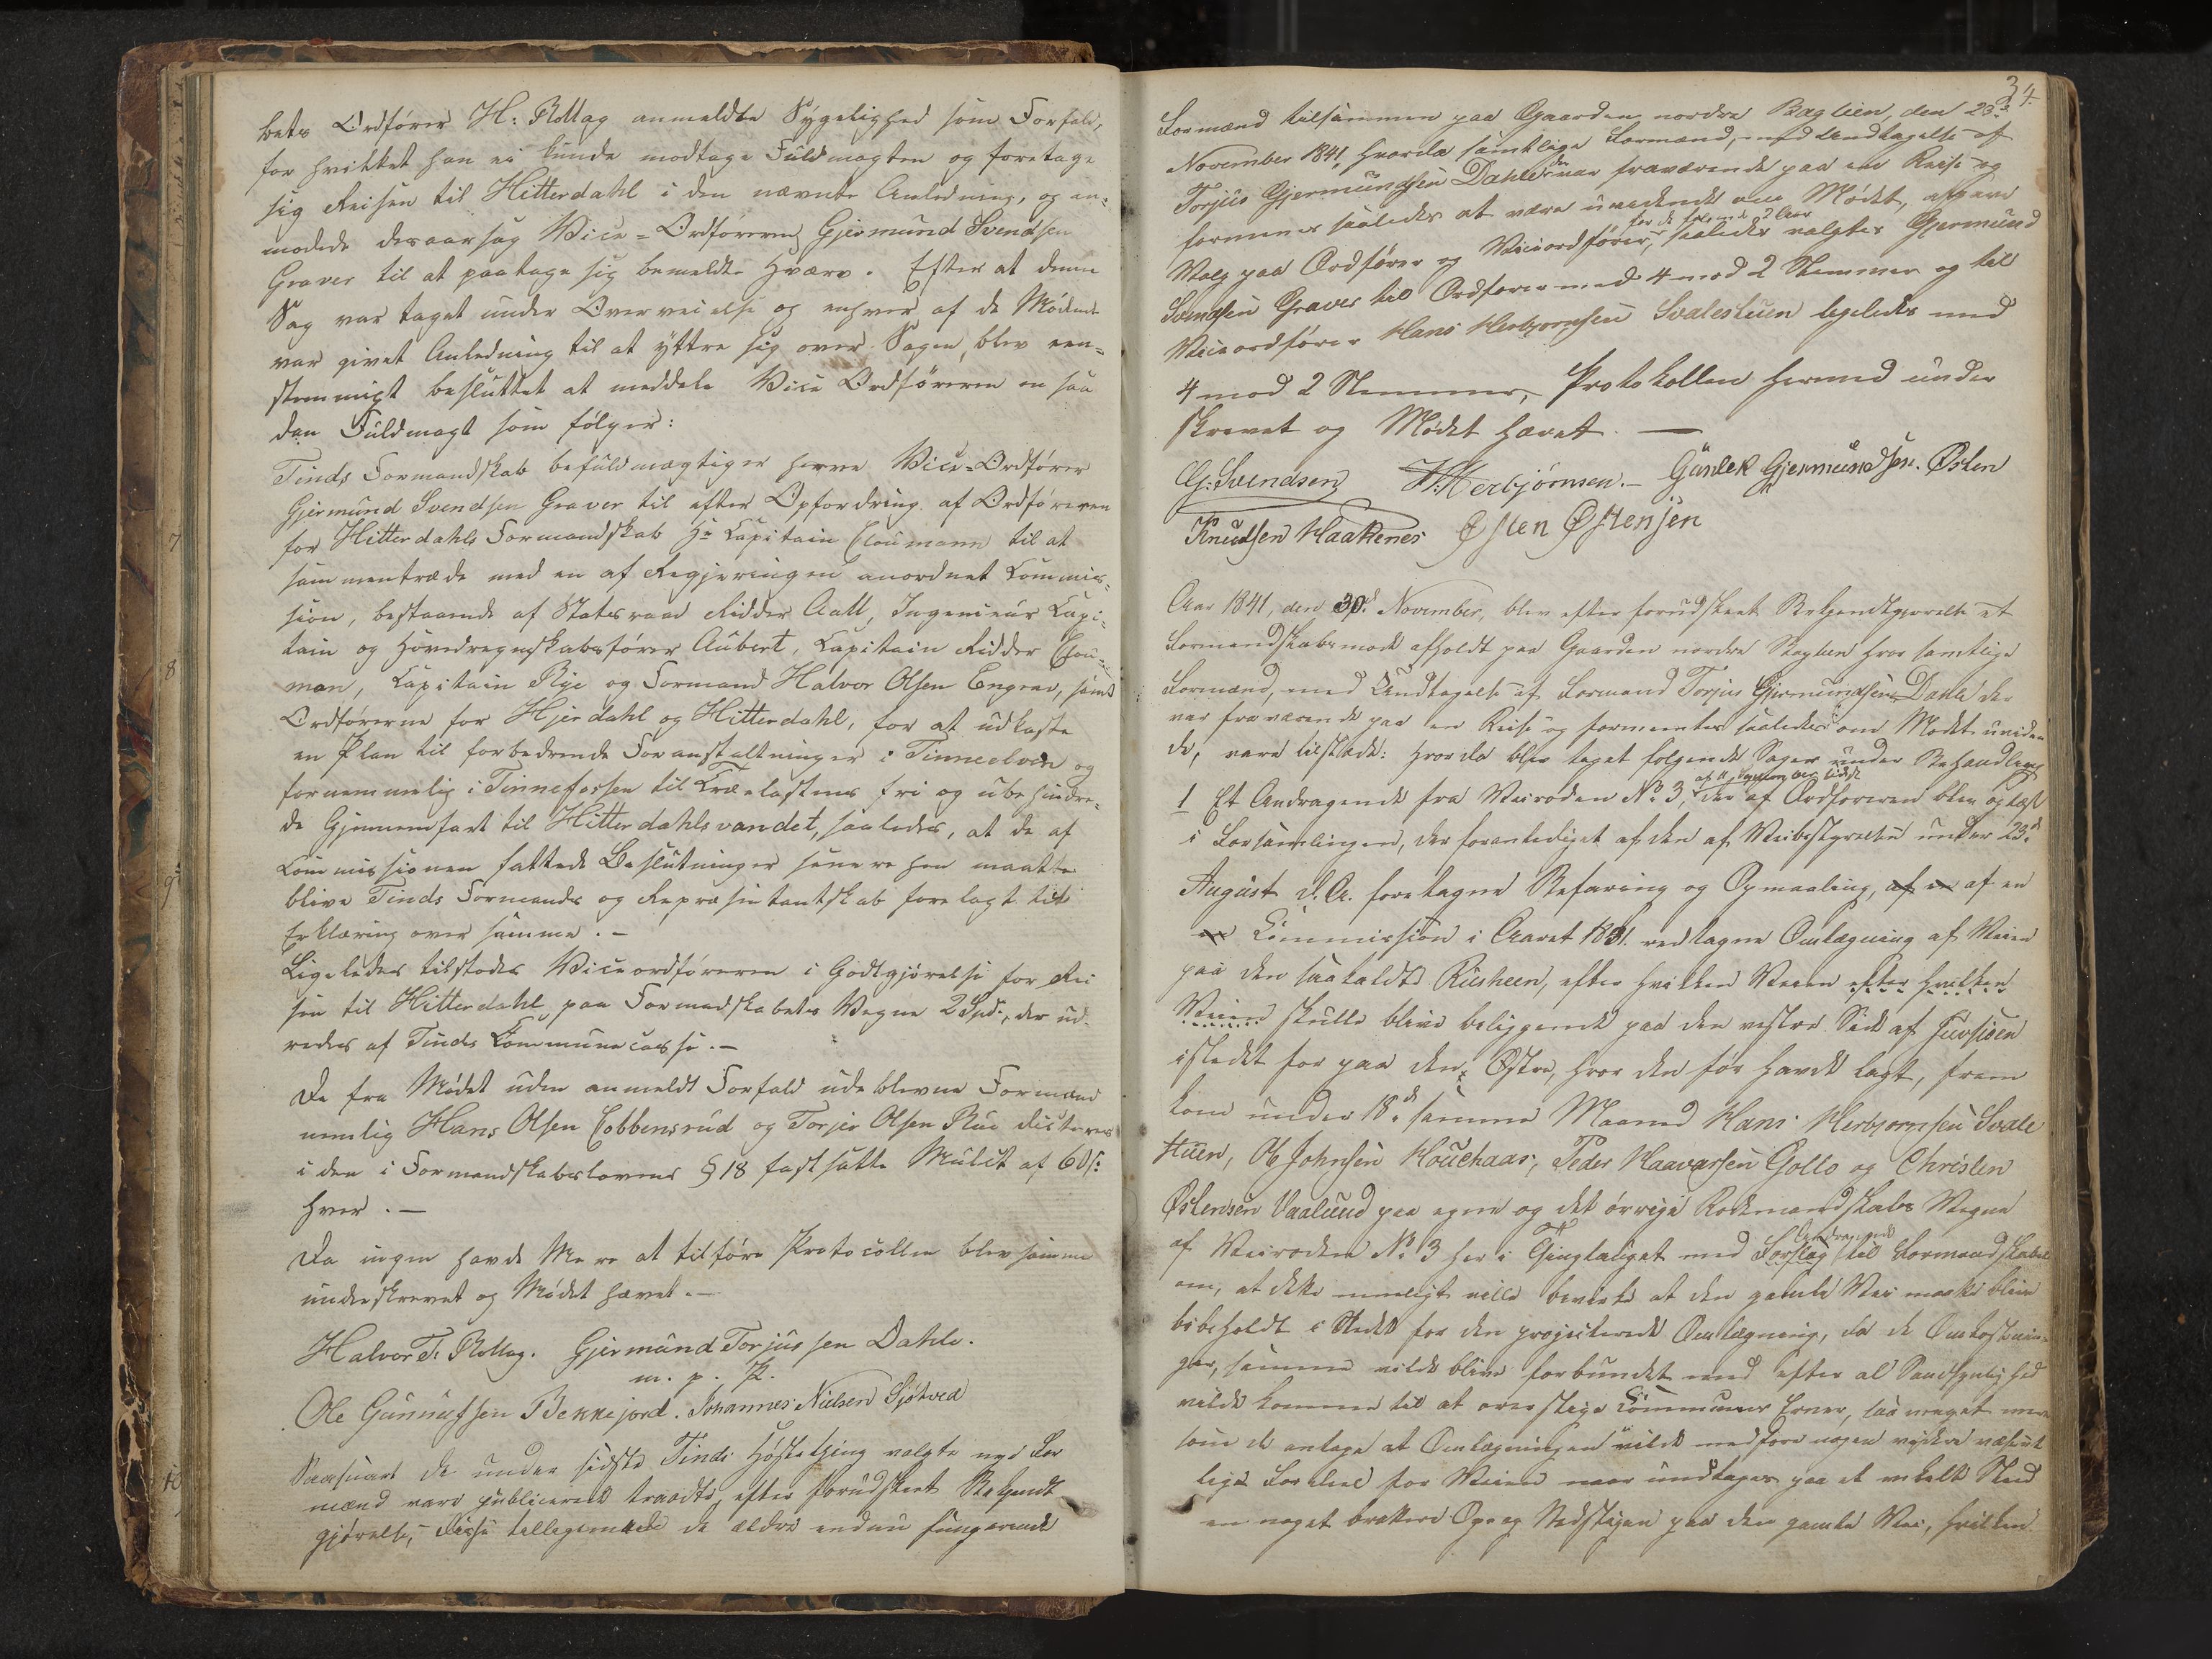 bets Ordfører H: Rollag anmeldte Sygelighed som Forfald,
for hvilket han ei kunde modtage Fuldmagten og foretage
sig Reisen til Hitterdahl i den nævnte Anledning, og an=
modede desaarsag Vice=Ordføreren Gjermund Svendsen
Graver til at paatage sig bemeldte Hværv. Efter at denne
Sag var taget under Overveielse og enhver af de Mødende
var givet Anledning til at yttre sig over Sagen, blev een=
stemmigt besluttet at meddele Vice Ordføreren en saa
dan Fuldmagt som følger:
Tinds Formandskab befuldmægtiger herre Vice=Ordfører
Gjermund Svendsen Graver til efter Opfordring af Ordføreren
for Hitterdahls Formandskab Hr Kapitain Cloumann til at
sammentræde med en af Regjeringen anordnet Kommis=
sion, bestaaende af Statsraad Ridder Aall, Ingenieur Kapi=
tain og Hovedregnskabsfører Aubert, Kapitain Ridder Clou=
man, Kapitain Rye og Formand Halvor Olsen Engrav, samt
Ordførerne for Hjerdahl og Hitterdahl, for at udkaste
en Plan til forbedrende Foranstaltninger i Tinneelven og
fornemmelig i Tinnefossen til Trælastens fri og ubehindre=
de Gjennemfart til Hitterdahlsvandet, saaledes, at de af
Kommissionen fattede Beslutninger senere hen maatte
blive Tinds Formands og Repræsentantskab forelagt til
Erklæring over samme. –
Ligeledes tilstodes Viceordføreren i Godtgjørelse for Rei
sen til Hitterdahl paa Formandskabets Vegne 2 Spd:, der ud
redes af Tinds Kommunecasse. –
De fra Mødet uden anmeldt Forfald udeblevne Formænd
nemlig Hans Olsen Cobbensrud og Torjer Olsen Rue dicteres
i den i Formandskabslovens § 18 fastsatte Mulct af 60 s:
hver. –
Da ingen havde Mere at tilføre Protocollen blev samme
underskrevet og Mødet hævet. –
Halvor T. Rollag. Gjermund Torjussen Dahle.
m. p. P.
Ole Gunnufsen Bekkejord. Johannes Nielsen Sjøtved
Saasnart de under sidste Tinds Høstething valgte nye For
mænd vare publicerede traadte, efter forudskeet Bekjendt
gjørelse, disse tilligemed de ældre endnu fungerende
34.
Formænd tilsammen paa Gaarden nordre Bagtien, den 23de
November 1841, hvorda samtlige Formænd, med Undtagelse af
Torjus Gjermundsen Dahle der var fraværende paa en Reise og
formenes saaledes at være uvidende om Mødet, afgave
for de følgende 2 Aar
Valg paa Ordfører og Viceordfører, saaledes valgtes Gjermund
Svendsen Graver til Ordfører med 4 mod 2 Stemmer og til
Viceordfører Hans Herbjørnsen Svalestuen ligeledes med
4 mod 2 Stemmer, Protokollen hermed under
skrevet og Mødet hævet. —
G: Svendsen H: Herbjørnsen. – Gunlek Gjermundsen. Østen
Knudsen Haakenes Østen Østensen
Aar 1841, den 30te November, blev efter forudskeet Bekjendtgjørelse et
Formandskabsmøde afholdt paa Gaarden nordre Bagtien hvor samtlige
Formænd, med Undtagelse af Formand Torjus Gjermundsen Dahle der
var fraværende paa en Reise og formeentes saaledes om Mødet uviden
de, vare tilstæde: hvorda blev taget følgende Sager under Behandling
1 Et Andragende fra Veiroden No 3, der af Ordføreren blev oplæst
i Forsamlingen, der foranlediget af den af Veibestyrelsen under 23de
August d. A. foretagne Befaring og Opmaaling, af en af en
en Kommission i Aaret 1831. vedtagne Omlægning af Veien
paa den saakaldte Rusheen, efter hvilken Veien efter hvilken
Veien skulde blive beliggende paa den vestre Side af
istedet for paa den Østre, hvor den før havde lagt, frem
kom under 18de samme Maaned Hans Herbjørnsen Svale
stuen, Ole Johnsen Houehaas, Peder Haavarsen Gollo og Christen
Østensen Vaalund paa egne og det øvrige Rodemandskabs Vegne
af Veiroden No 3 her i Thinglauget med Forslag Andragende til Formandskabet
om, at dette ville bevirke at den gamle Vei maatte blive
bibeholdt i Stedet for den projecterede Omlægning, da de Omkostnin=
ger, samme vilde blive forbundet med efter al Sandsynlighed
vilde komme til at overstige Kommunens Evner, saa meget mere
som de antage at Omlægningen vilde medføre nogen videre væsent
lige Fordeel for Veien naar undtages paa et enkelt Sted
en noget brattere Op og Nedstigen paa den gamle Vei, hvilken
7
8
9
10